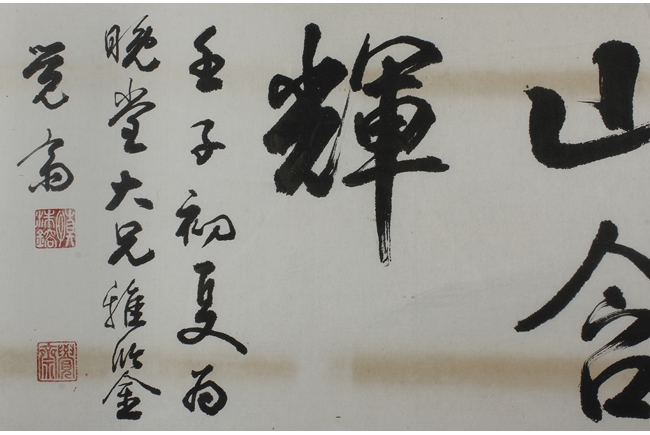 山含
輝
壬子初夏为
晚堂大兄雅鑒
覺翁